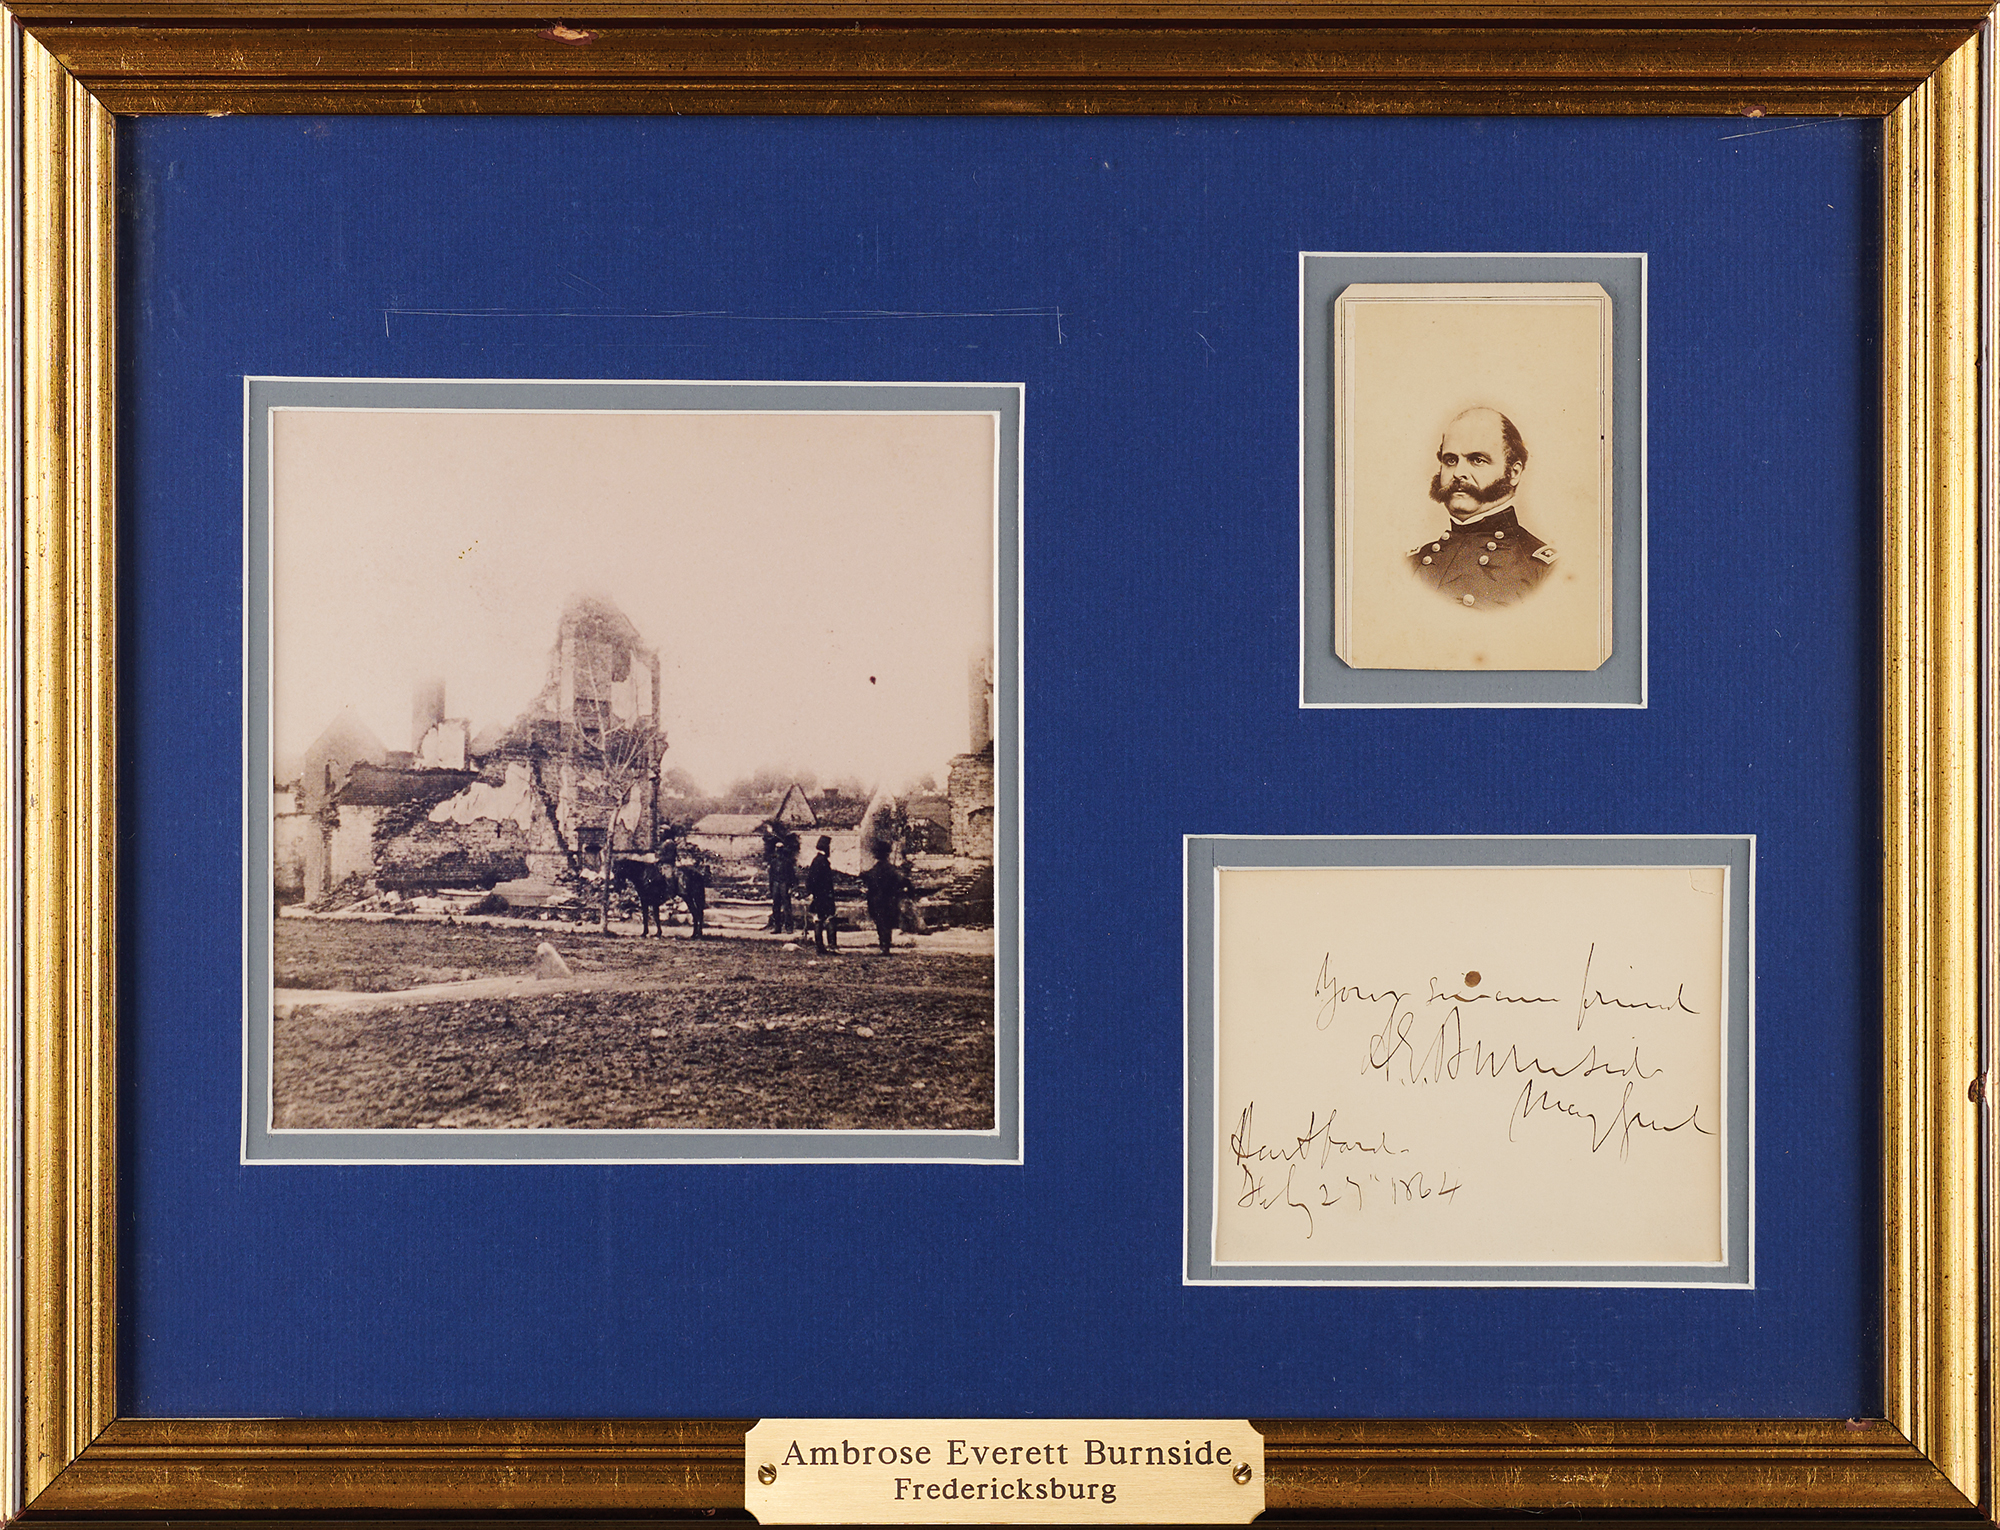 Your sincere friend
A. E. Burnside
Maj Genl
Hartford.
Feby 27" 1864
Ambrose Everett Burnside
Fredericksburg